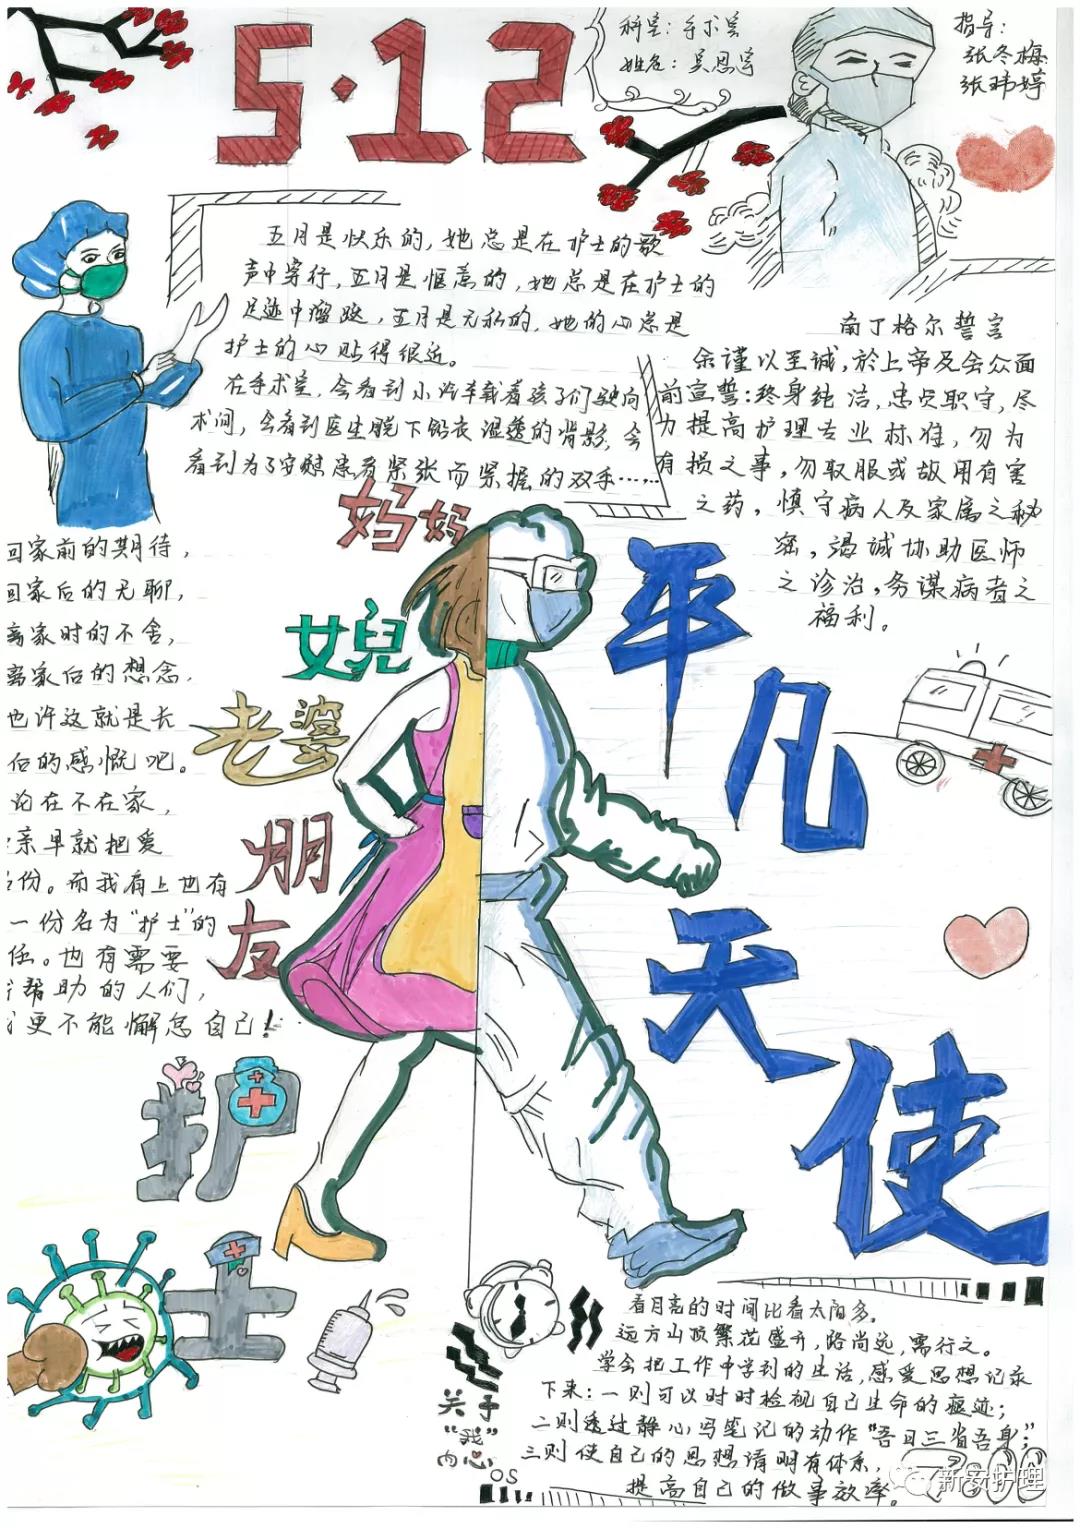 5·12
科室：手术室
姓名：吴恩宇
指导：
张冬梅
张玮婷
五月是快乐的，她总是在护士的歌
声中穿行，五月是惬意的，她总是在护士的
足迹中溜跶，五月是无私的，她的心总是
护士的心贴得很近。
在手术室，会看到小汽车载着孩子们驶向
术间，会看到医生脱下铅衣湿透的背影，会
看到为了安慰患者紧张而紧握的双手……
南丁格尔誓言
余谨以至诚，於上帝及会众面
前宣誓：终身纯洁，忠贞职守，尽
力提高护理专业标准，勿为
有损之事，勿取服或故用有害
之药，慎守病人及家属之秘
密，竭诚协助医师
之诊治，务谋病者之
福利。
妈妈
女兒
老婆
朋友
平凡天使
回家前的期待，
回家后的无聊，
离家时的不舍，
离家后的想念，
也许这就是长
后的感慨吧。
论在不在家，
亲早就把爱
份。而我肩上也有
一份名为“护士”的
任。也有需要
帮助的人们，
我更不能懈怠自己！
护士
关于
“我”
内心
OS
看月亮的时间比看太阳多。
远方山顶繁花盛开，路尚远，需行之。
学会把工作中学到的生活，感受思想记录
下来：一则可以时时检视自己生命的痕迹；
二则透过静心写笔记的动作“吾日三省吾身”；
三则使自己的思想清明有体系，
提高自己的做事效率。
新安护理